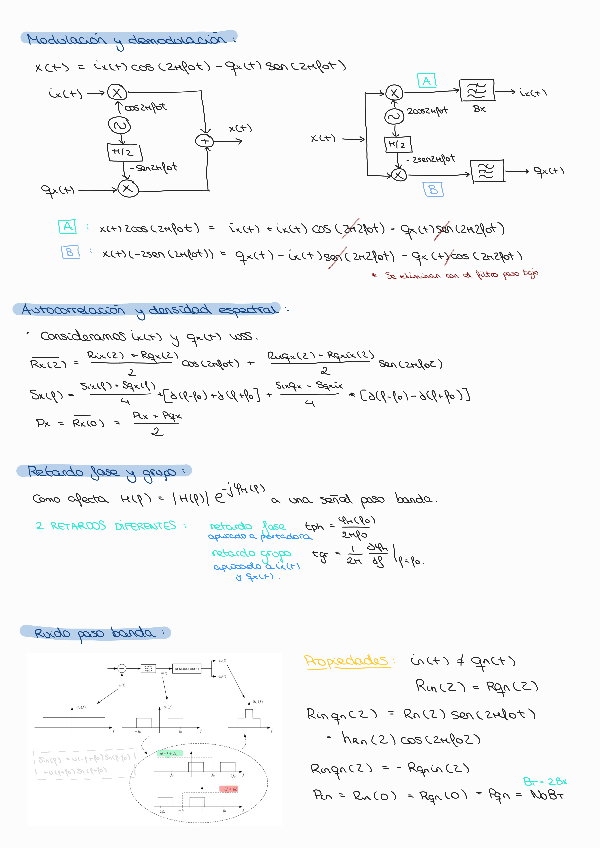 Modulación y demodulación:
x(t) = ix(t) cos(2πf0t) - qx(t) sen(2πf0t)
ix(t)
X
cos2πf0t
π/2
-sen2πf0t
qx(t)
X
+
x(t)
A
x(t)
X
2cos2πf0t
Bx
ix(t)
π/2
-2sen2πf0t
X
B
qx(t)
A : x(t)2cos(2πf0t) = ix(t) + ix(t) cos(2π2f0t) - qx(t) sen(2π2f0t)
B : x(t)(-2sen(2πf0t)) = qx(t) - ix(t) sen(2π2f0t) - qx(t) cos(2π2f0t)
* Se eliminan con el filtro paso bajo
Autocorrelación y densidad espectral:
· Consideramos ix(t) y qx(t) WSS.
Rx(z) = Rix(z) + Rqx(z) / 2 cos(2πf0t) + Rixqx(z) - Rqxix(z) / 2 sen(2πf0z)
Sx(f) = Six(f) + Sqx(f) / 4 * [∂(f-f0) + ∂(f+f0)] + Sixqx - Sqxix / 4 * [∂(f-f0) - ∂(f+f0)]
Px = Rx(0) = Pix + Pqx / 2
Retardo fase y grupo:
Como afecta H(f) = |H(f)| e^-jφH(f) a una señal paso banda.
2 RETARDOS DIFERENTES : retardo fase tph = φH(f0) / 2πf0
aplicado a portadora
retardo grupo tgr = 1/2π ∂φh/∂f |f=f0.
aplicado a ix(t)
y qx(t).
Ruido paso banda:
Propiedades: in(t) ≠ qn(t)
Rin(z) = Rqn(z)
Rinqn(z) = Rn(z) sen(2πf0t)
- hRn(z) cos(2πf0z)
Rinqn(z) = - Rqnin(z)
BT = 2Bx
Pin = Rin(0) = Rqn(0) = Pqn = N0BT